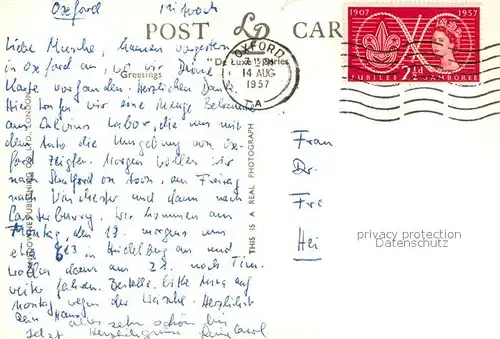 Oxford Mittwoch
POST CARD
Liebe Musche, kamen vorgestern
in Oxford an, wo wir Deine
Karte vorfanden. Herzlichen Dank.
Hier trafen wir eine Menge Bekannte
aus Calvins Labor, die uns mit
dem Auto die Umgebung von Ox-
ford zeigten. Morgen wollen wir
nach Stratford on Avon, am Freitag
nach Winchester und dann nach
Canterbury. Wir kommen am
Montag, den 19. morgens um
etwa 8 in Heidelberg an und
wollen dann am 21. nach Tirol
weiter fahren. Bestelle bitte Anna auf
Montag wegen der Wäsche. Herzlichst
Dein Hans
alles sehr schön hier
Jetzt Herzliche Grüsse Deine Carol
Greetings
"De Luxe" Series
OXFORD
7 15 PM
14 AUG
1957
A
1907 1957
2½D
JUBILEE JAMBOREE
THIS IS A REAL PHOTOGRAPH
PUBLISHING CO. LTD., LONDON
Frau
Dr.
Fre
Hei
privacy protection
Datenschutz